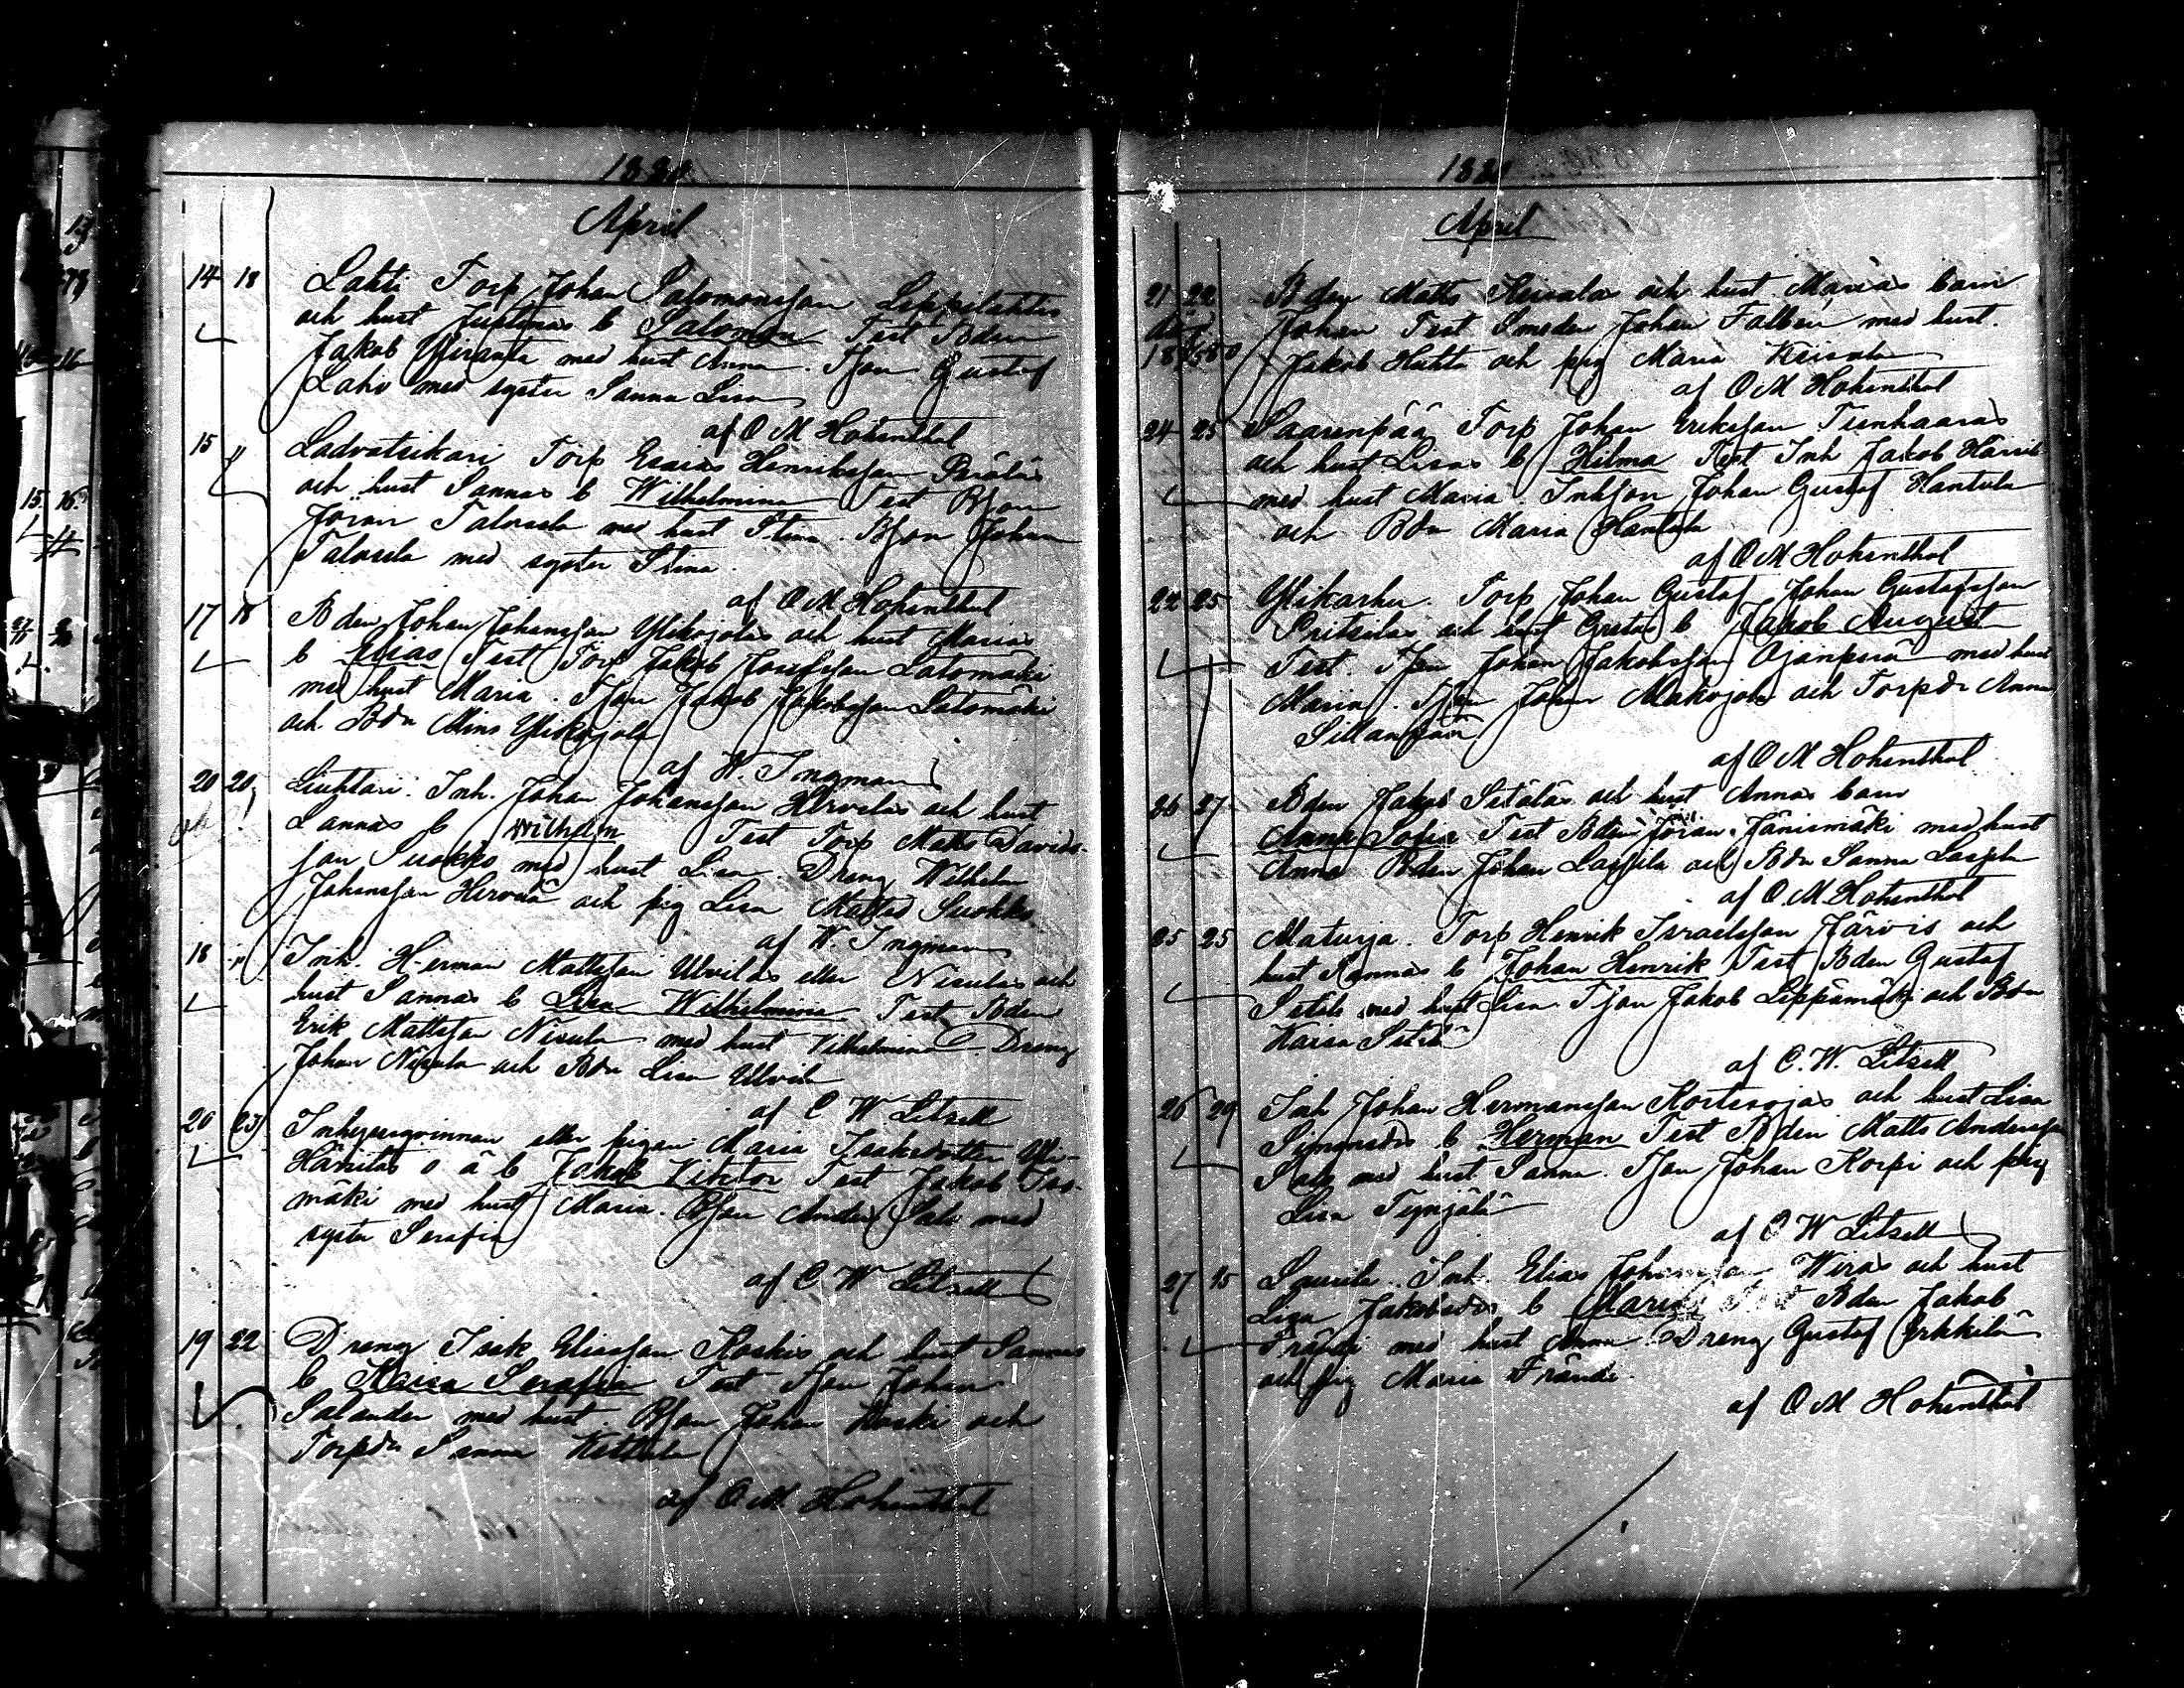 1880
April
14 18 Lahti Torp Johan Salomonsson Leppilahtis
och hust Justinas b Salomon Test Bden
Jakob Yliranta med hust Anna. Tson Gustaf
Lahti med syster Sanna Lisa
af O M Hohenthal
15 " Ladvatsikari Torp Esaias Henriksson
och hust Sannas b Wilhelmina Test Bson
Jöran Talosela med hust Stina. Bson Johan
Talosela med syster Stina.
af O M Hohenthal
17 18 Bden Johan Johansson Ylikojolas och hust Marias
b Elias Test Torp Jakob Josefsson Latomäki
med hust Maria. Tson Jakob Jakobsson Latomäki
och Bdr Mina Ylikojola
af W. Ingman
20 20 Liuhtari. Inh. Johan Johansson Hirvelas och hust
Sannas b Wilhelm Test Torp Matts Davids-
son Suokko med hust Lisa. Dreng Wilhelm
Johansson Hirvelä och pig Lisa Mattsd Suokko
af W. Ingman
18 " Inh. Herman Mattsson Ulvilas eller Nisulas och
hust Sannas b Lisa Wilhelmina Test Bden
Erik Mattsson Nisula med hust Vilhelmina. Dreng
Johan Nisula och Bdr Lisa Ulvila
af C W Litzell
20 23 Inhysesqvinnan eller pigan Maria Isaksdotter Yli-
Härsilas o ä b Jakob Viktor Test Jakob Iso-
mäki med hust Maria. Bson Anders Salo med
syster Serafia
af C W Litzell
19 22 Dreng Isak Eliasson Koskis och hust Sannas
b Kaisa Serafia Test Tson Johan
Salander med hust. Bson Johan Koski och
Torpdr Sanna
af O M Hohenthal
1880
April
21 22 Bden Matts Keisalas och hust Marias barn
Johan Test Smeden Johan Falben med hust.
18 80 Jakob Huhta och pig Maria Keisala
af O M Hohenthal
24 25 Saarenpää Torp Johan Eriksson
och hust Lisas b Hilma Test Inh Jakob Harsil
med hust Maria. Inhson Johan Gustaf Hantula
och Bdr Maria Hantula
af O M Hohenthal
22 25 Ylikarhu. Torp Johan Gustaf Johan Gustafsson
Pritsilas och hust Gretas b Jakob August
Test. Tson Johan Jakobsson Ojanperä med hust
Maria. Tson Johan Makojola och Torpdr Anna
Sillanpää
af O M Hohenthal
26 27 Bden Jakob Setäläs och hust Annas barn
Anna Sofia Test Bden Jöran Jänismäki med hust
Anna Bden Johan Lassila och Bdr Sanna Lassila
af O. M. Hohenthal
25 25 Maturja. Torp Henrik Israelsson Järvis och
hust Sannas b Johan Henrik Test Bden Gustaf
Setälä med hust Lisa. Tson Jakob Leppämäki och Bdr
Kaisa Setälä
af C. W. Litzell
26 29 Inh Johan Hermansson Kortesojas och hust Lisa
Simonsdrs b Herman Test Bden Matts Andersson
Salo med hust Sanna. Tson Johan Korpi och pig
Lisa Tynjälä
af C W Litzell
27 15 Laurila. Inh. Elias Johansson Wiras och hust
Lisa Jakobsdrs b Maria Test Bden Jakob
Frändi med hust Anna. Dreng Gustaf Erkkilä
och pig Maria Frändi.
af O M Hohenthal